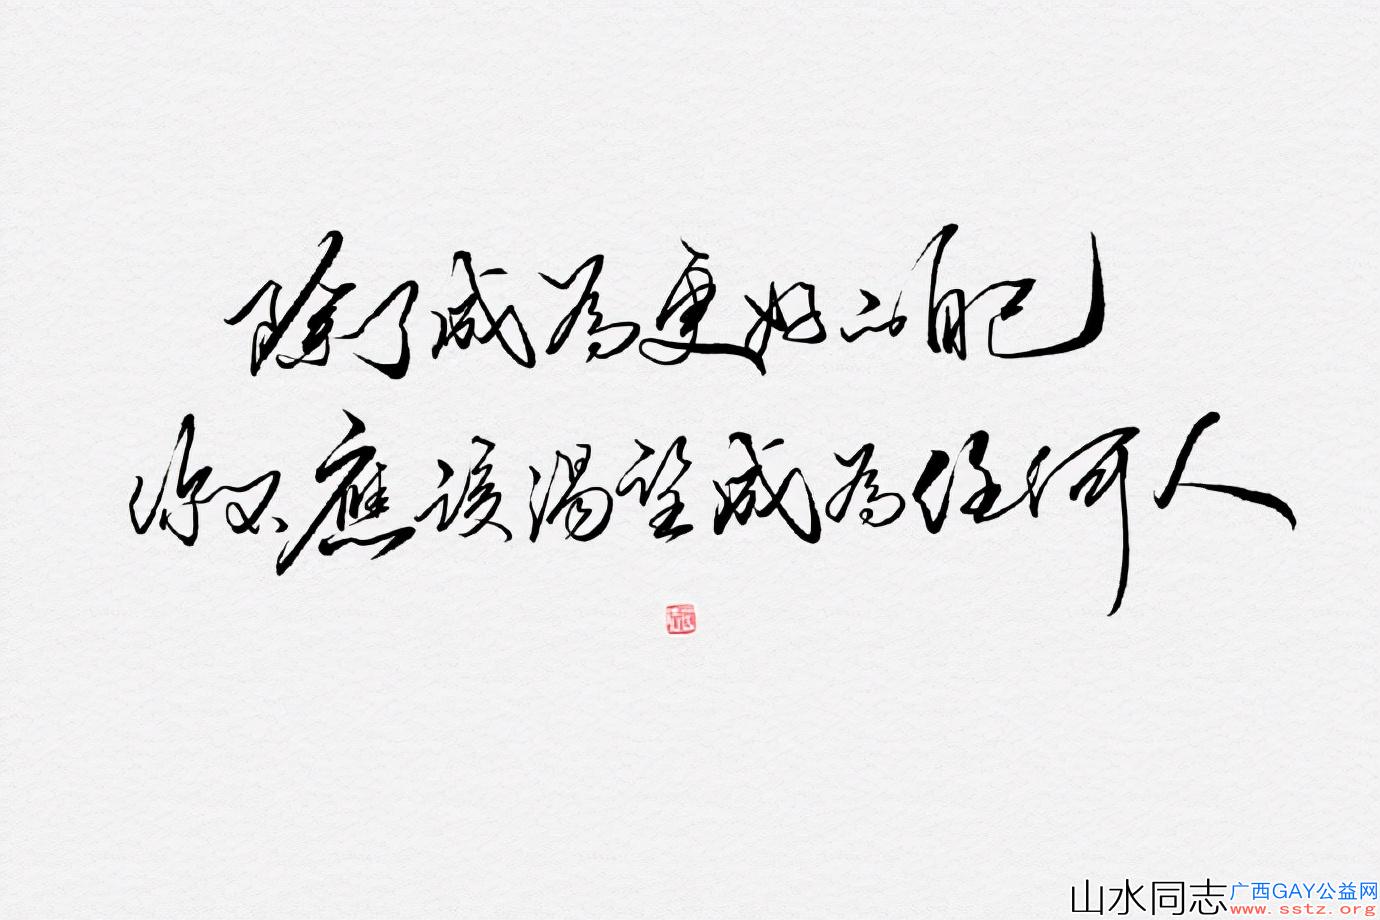 除了成為更好的自己
你不應該渴望成為任何人
山水同志
广西GAY公益网
www.sstz.org